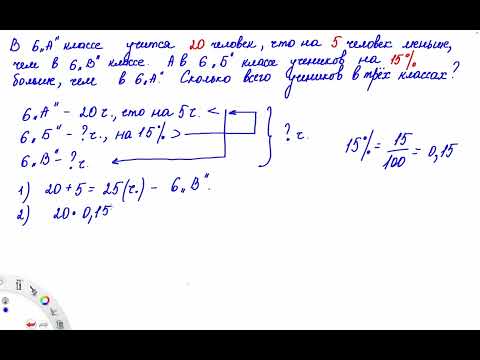 В 6„А" классе учится 20 человек, что на 5 человек меньше,
чем в 6„В" классе. А в 6„Б" классе учеников на 15%
больше, чем в 6„А". Сколько всего учеников в трёх классах?
6„А" - 20 ч., что на 5 ч. <
6„Б" - ? ч., на 15% >
6„В" - ? ч.
? ч.
15% = 15/100 = 0,15
1) 20 + 5 = 25 (ч.) - 6„В".
2) 20 • 0,15